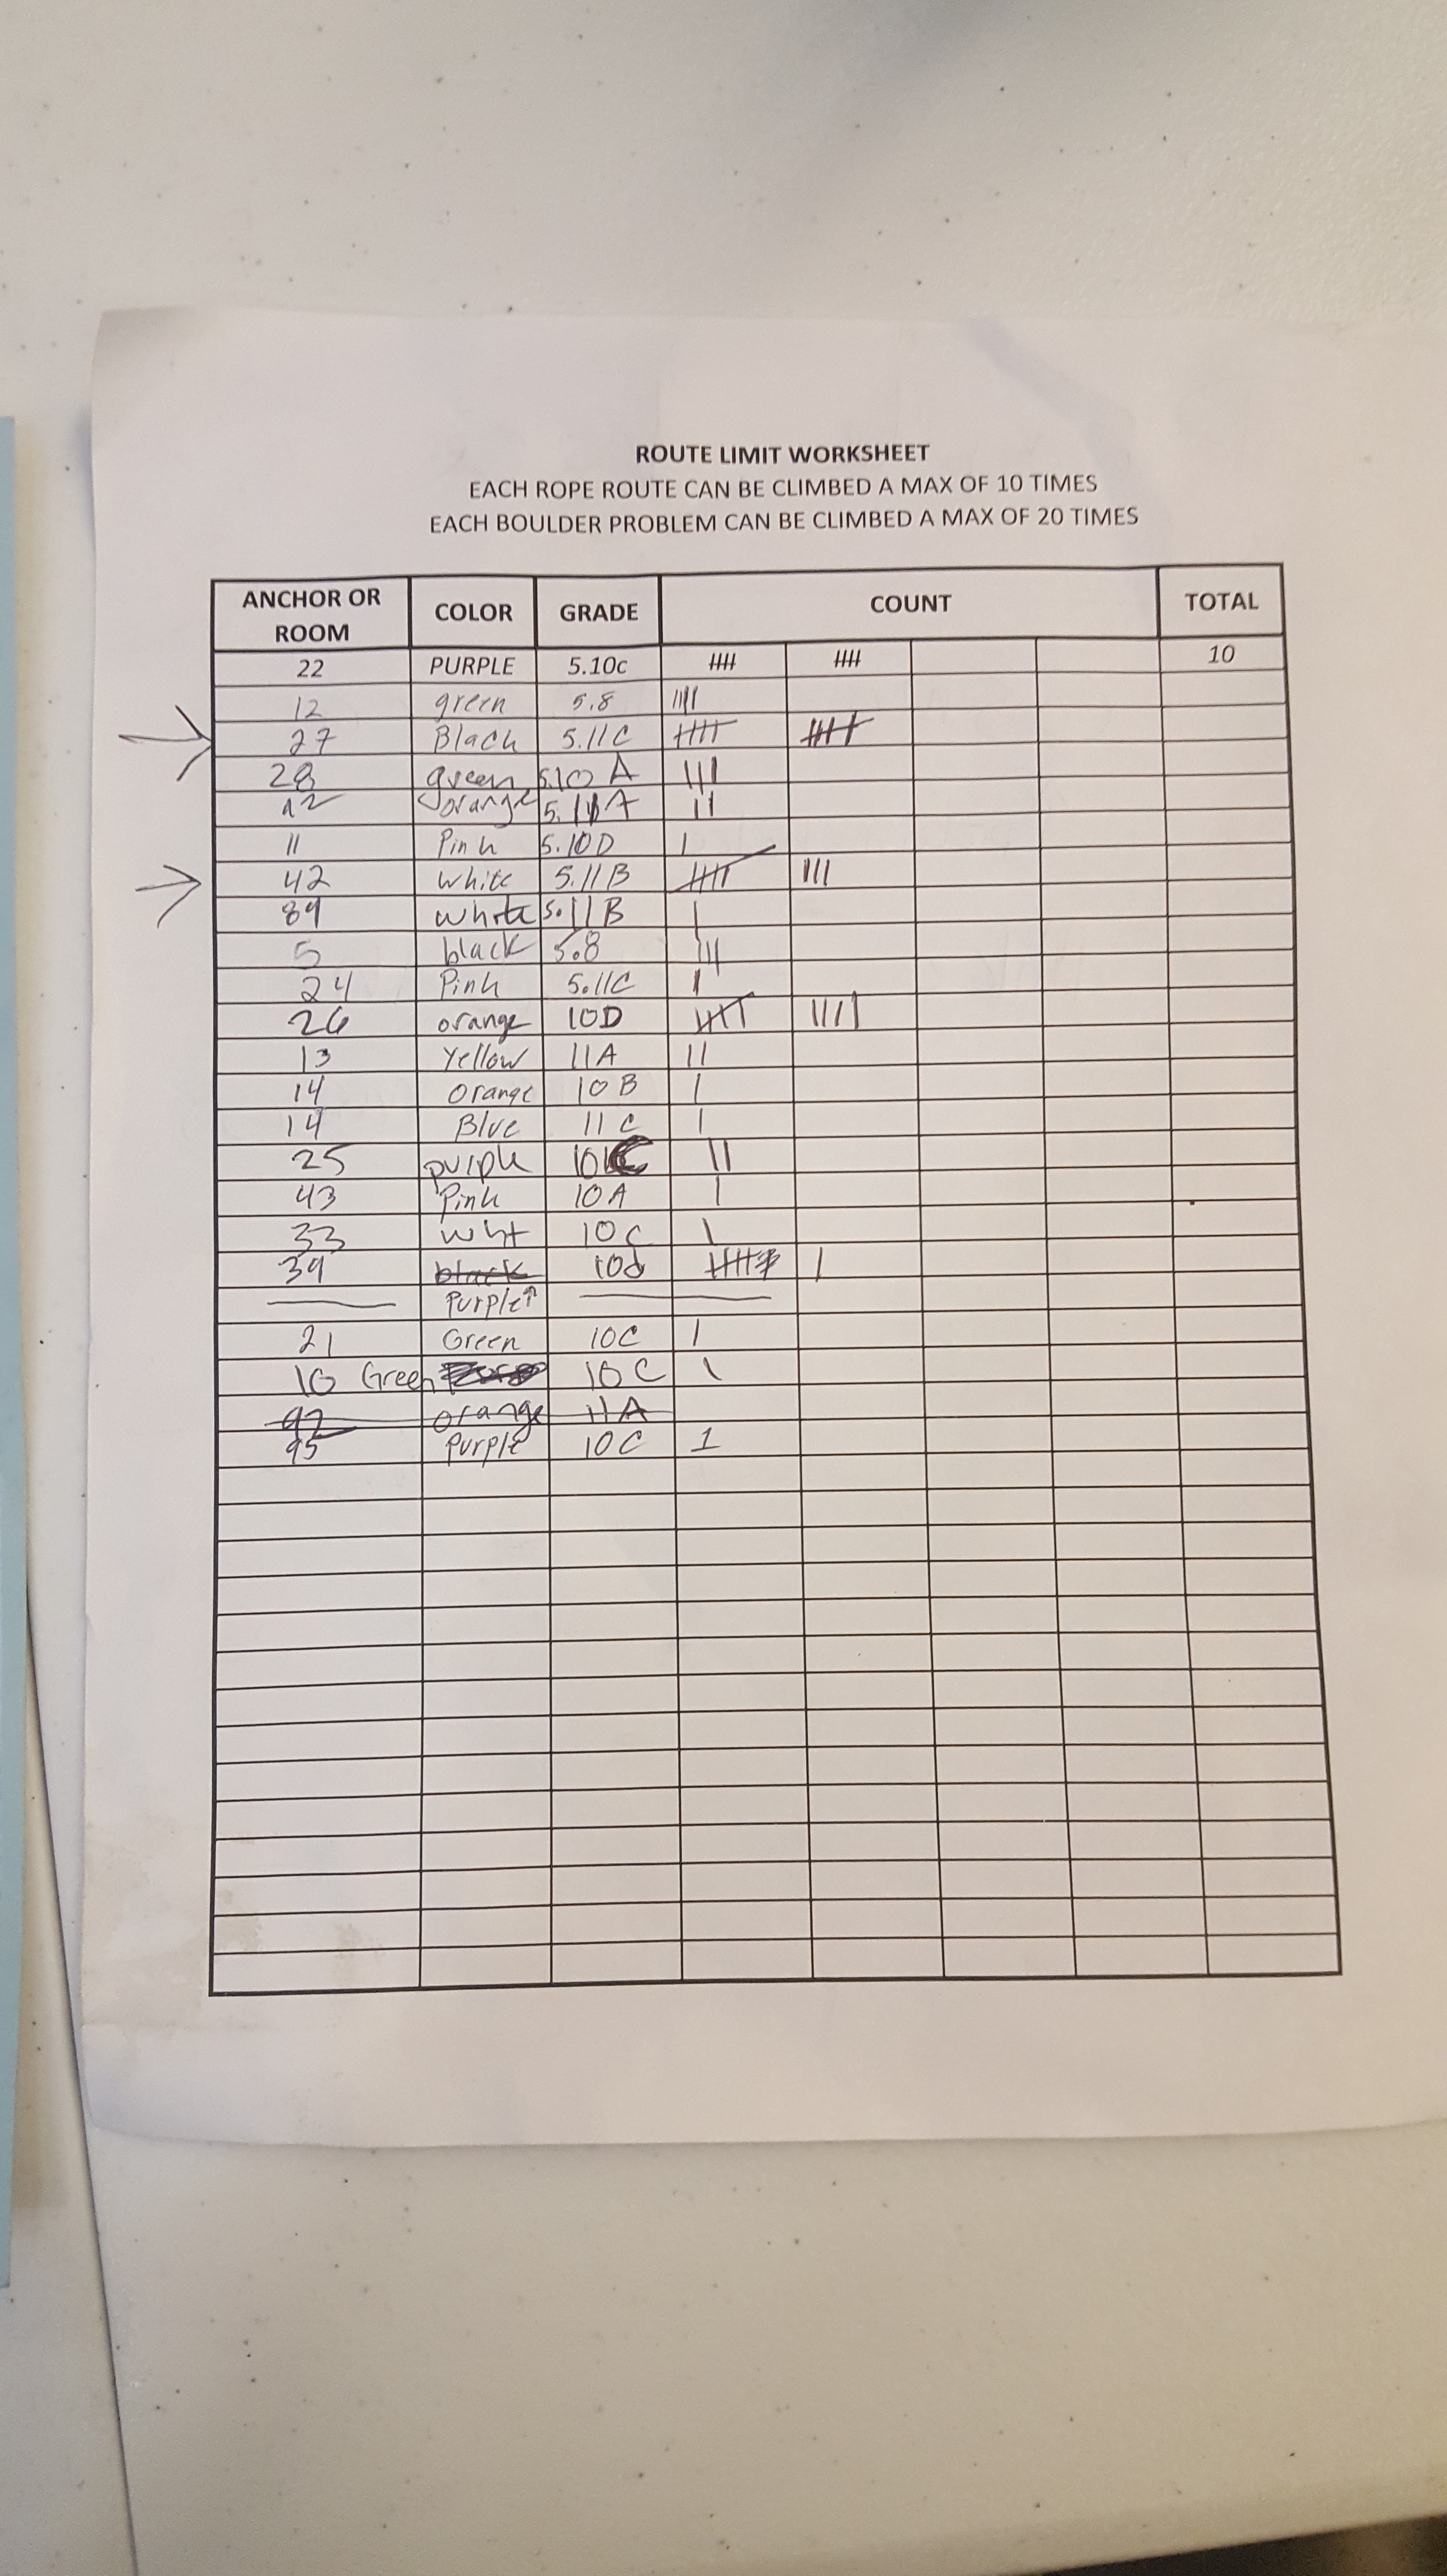 ROUTE LIMIT WORKSHEET
EACH ROPE ROUTE CAN BE CLIMBED A MAX OF 10 TIMES
EACH BOULDER PROBLEM CAN BE CLIMBED A MAX OF 20 TIMES
ANCHOR OR ROOM COLOR GRADE COUNT TOTAL
22 PURPLE 5.10c 10
12 green 5.8
27 Black 5.11C
28 green 5.10 A
orange 5.11A
11 Pink 5.10D
42 white 5.11B
89 white 5.11B
5 black 5.8
24 Pink 5.11C
26 orange 10D
13 Yellow 11A
14 Orange 10B
14 Blue 11C
25 purple 10C
43 Pink 10A
33 wht 10C
39 black 10d
Purple↑
21 Green 10C
10 Green 10C
92 orange 11A
95 Purple 10C 1